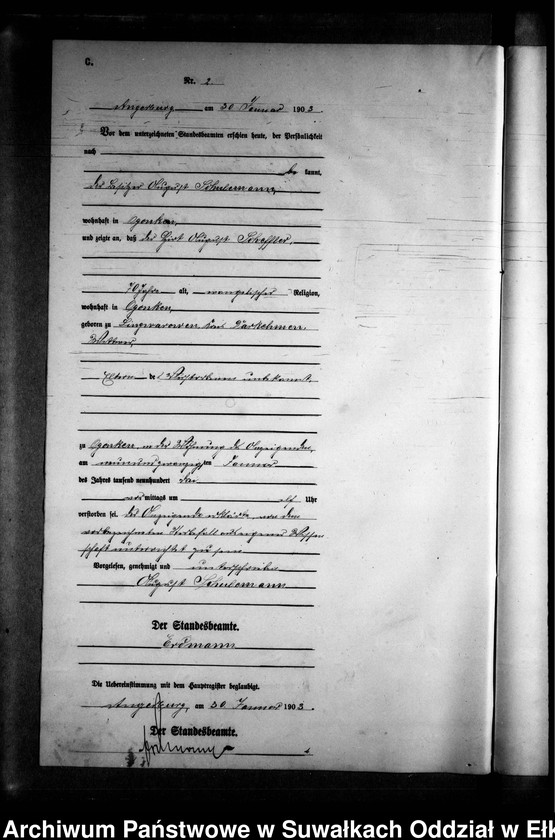 C.
Nr. 2
Angerburg am 30 Januar 1903
Vor dem unterzeichneten Standesbeamten erschien heute, der Persönlichkeit
nach
be kannt,
der Besitzer August Schuemann,
wohnhaft in Ogonken,
und zeigte an, daß der Hirt August Scheffler,
70 Jahre alt, evangelischer Religion,
wohnhaft in Ogonken,
geboren zu Kreis Darkehmen,
Wittwer,
Eltern des Verstorbenen unbekannt,
zu Ogonken, in der Wohnung des Anzeigenden,
am neunundzwanzigsten Januar
des Jahres tausend neunhundert drei
vor mittags um elf Uhr
verstorben sei. Der Anzeigende erklärte, von dem
vorbezeichneten Sterbefall aus eigener Wissen
schaft unterrichtet zu sein
Vorgelesen, genehmigt und unterschrieben
August Schuemann
Der Standesbeamte.
Erdmann
Die Uebereinstimmung mit dem Hauptregister beglaubigt.
Angerburg, am 30 Januar 1903.
Der Standesbeamte.
Erdmann
Archiwum Państwowe w Suwałkach Oddział w Ełk